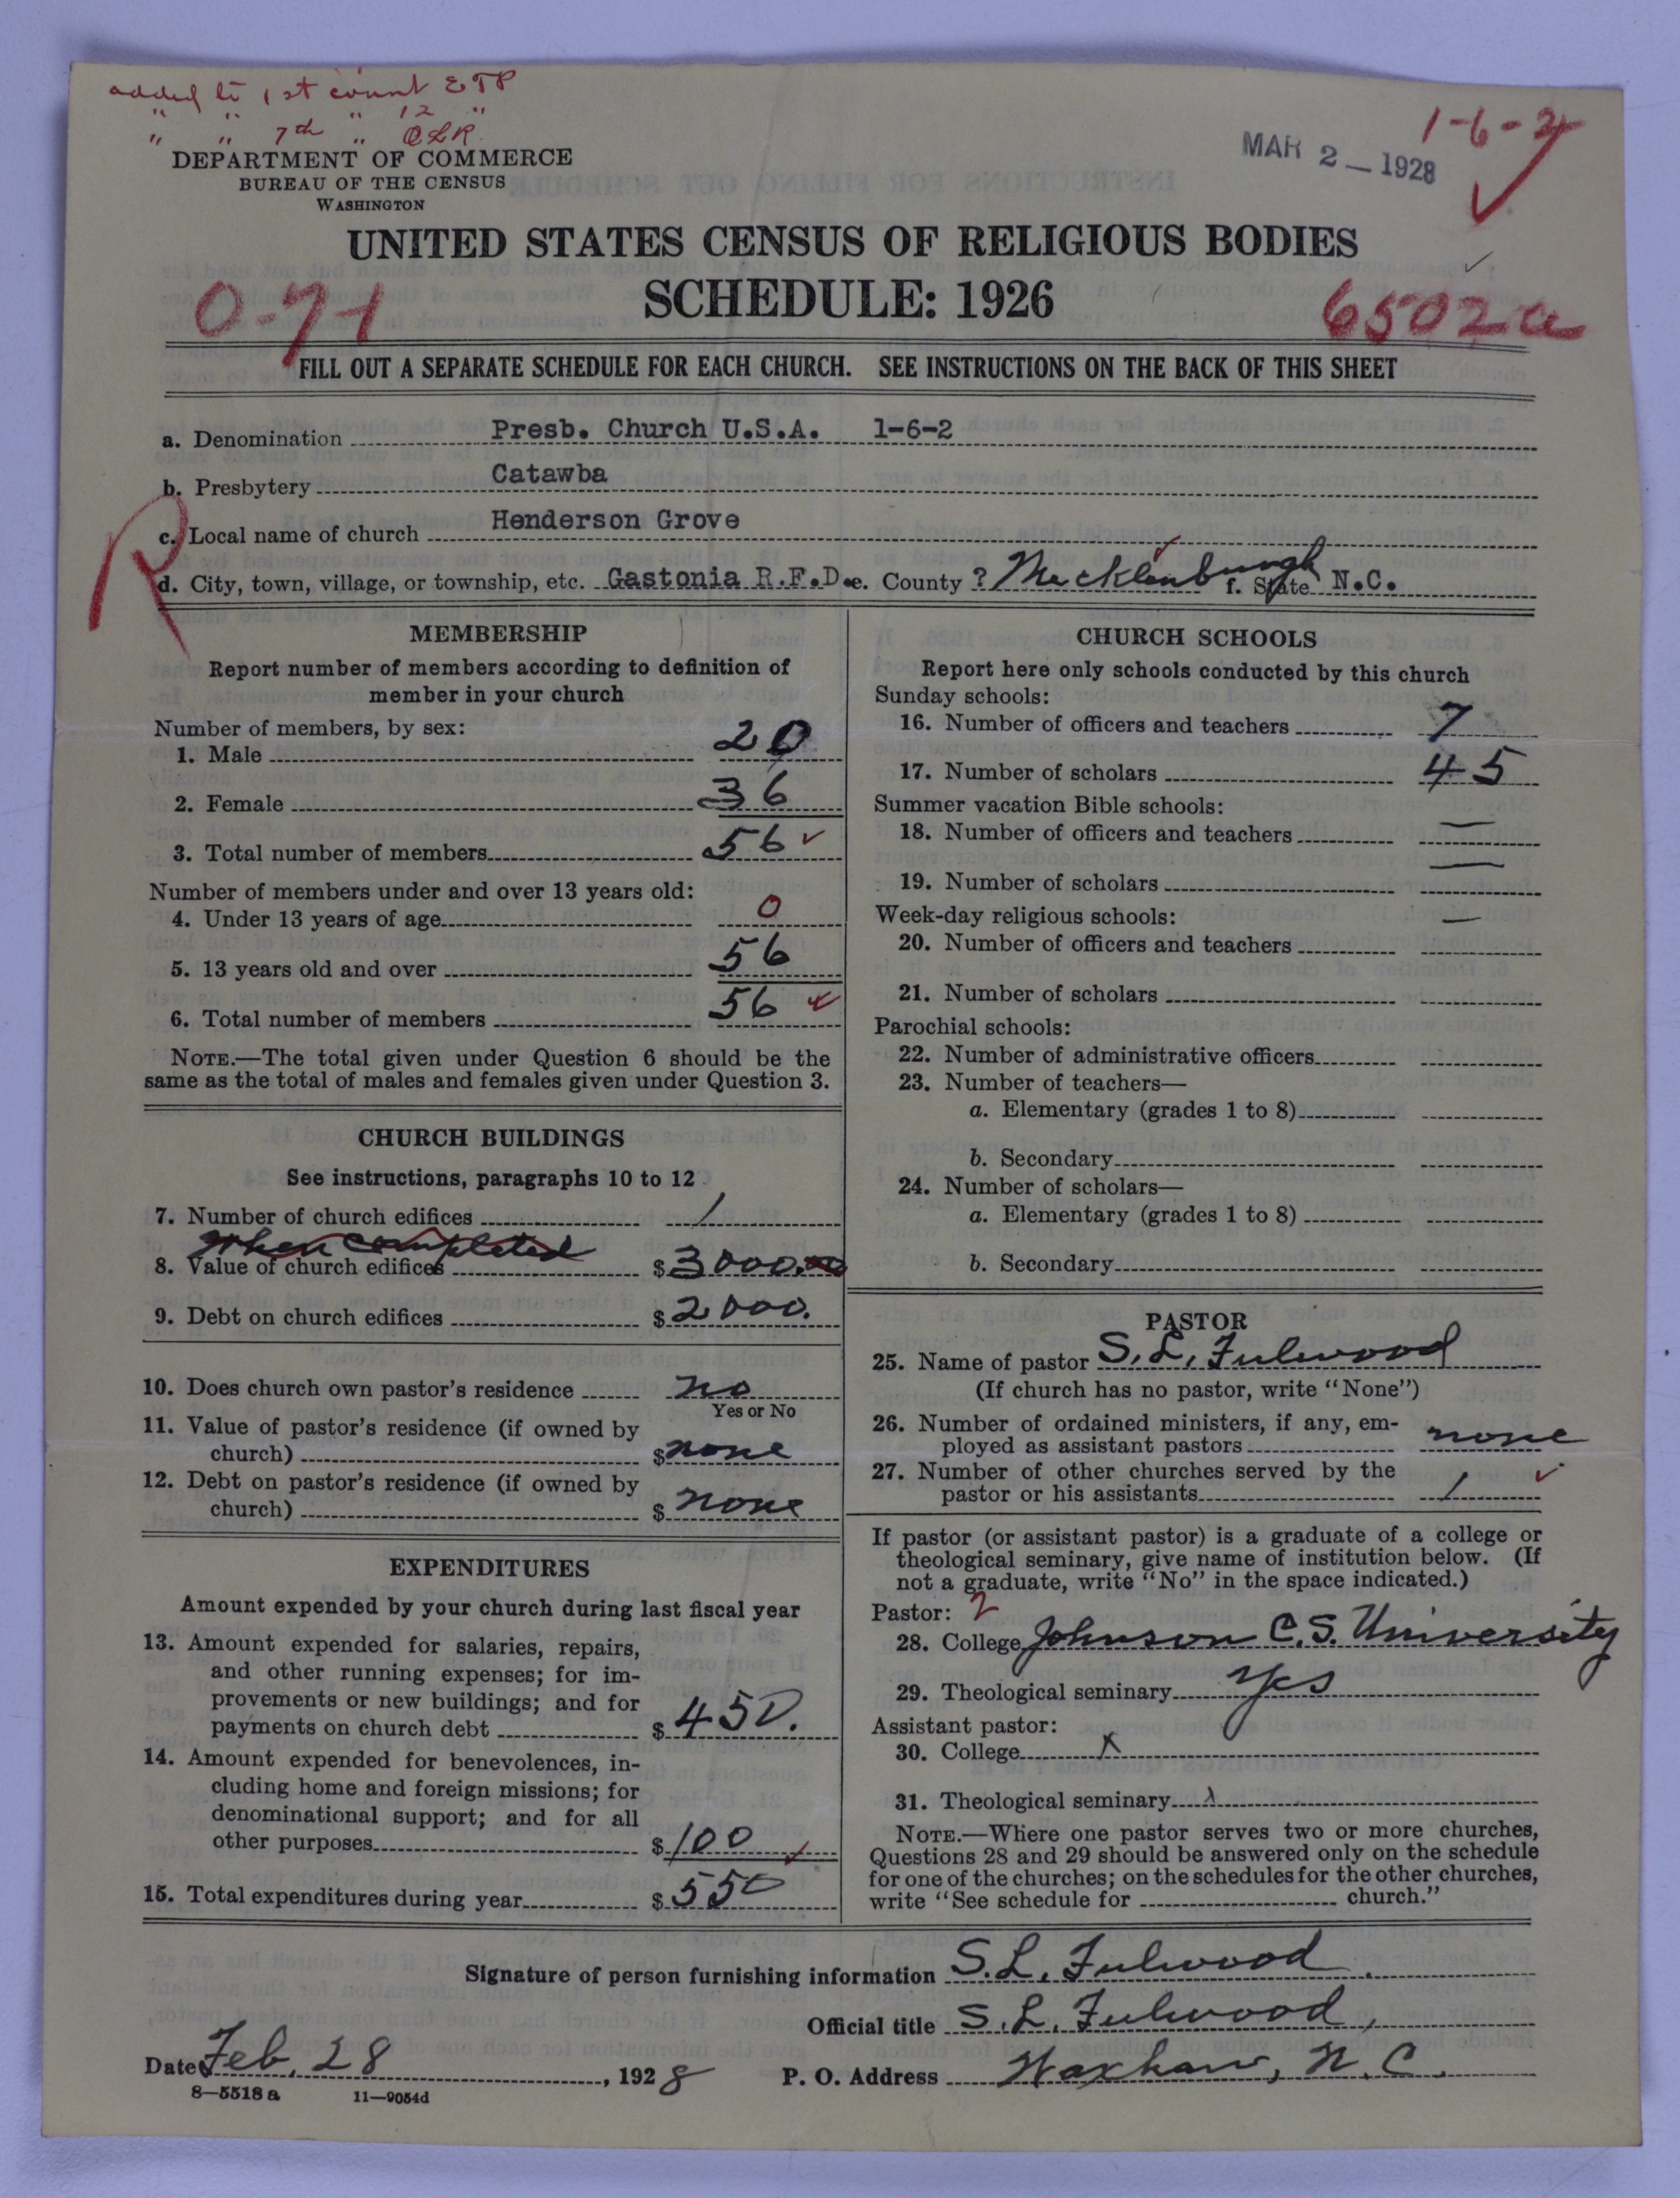 added to 1st count ETP
" " " 12 "
" " 7th " CLR
DEPARTMENT OF COMMERCE
BUREAU OF THE CENSUS
WASHINGTON
1-6-2
MAR 2 — 1928
UNITED STATES CENSUS OF RELIGIOUS BODIES
SCHEDULE: 1926
0-71
6502a
FILL OUT A SEPARATE SCHEDULE FOR EACH CHURCH. SEE INSTRUCTIONS ON THE BACK OF THIS SHEET
a. Denomination Presb. Church U.S.A. 1-6-2
b. Presbytery Catawba
R
c. Local name of church Henderson Grove
d. City, town, village, or township, etc. Gastonia R.F.D. e. County ? Mecklenburgh f. State N.C.
MEMBERSHIP
Report number of members according to definition of
member in your church
Number of members, by sex:
1. Male 20
2. Female 36
3. Total number of members 56 ✓
Number of members under and over 13 years old:
4. Under 13 years of age 0
5. 13 years old and over 56
6. Total number of members 56 ✓
NOTE.—The total given under Question 6 should be the
same as the total of males and females given under Question 3.
CHURCH BUILDINGS
See instructions, paragraphs 10 to 12
7. Number of church edifices 1
When completed
8. Value of church edifices $3000.00
9. Debt on church edifices $2000.
10. Does church own pastor's residence no
Yes or No
11. Value of pastor's residence (if owned by
church) $none
12. Debt on pastor's residence (if owned by
church) $none
EXPENDITURES
Amount expended by your church during last fiscal year
13. Amount expended for salaries, repairs,
and other running expenses; for im-
provements or new buildings; and for
payments on church debt $450.
14. Amount expended for benevolences, in-
cluding home and foreign missions; for
denominational support; and for all
other purposes $100 ✓
15. Total expenditures during year $550
CHURCH SCHOOLS
Report here only schools conducted by this church
Sunday schools:
16. Number of officers and teachers 7
17. Number of scholars 45
Summer vacation Bible schools:
18. Number of officers and teachers —
19. Number of scholars —
Week-day religious schools: —
20. Number of officers and teachers
21. Number of scholars
Parochial schools:
22. Number of administrative officers
23. Number of teachers—
a. Elementary (grades 1 to 8)
b. Secondary
24. Number of scholars—
a. Elementary (grades 1 to 8)
b. Secondary
PASTOR
25. Name of pastor S. L. Fulwood
(If church has no pastor, write "None")
26. Number of ordained ministers, if any, em-
ployed as assistant pastors none
27. Number of other churches served by the
pastor or his assistants 1 ✓
If pastor (or assistant pastor) is a graduate of a college or
theological seminary, give name of institution below. (If
not a graduate, write "No" in the space indicated.)
Pastor: 2
28. College Johnson C. S. University
29. Theological seminary Yes
Assistant pastor:
30. College x
31. Theological seminary x
NOTE.—Where one pastor serves two or more churches,
Questions 28 and 29 should be answered only on the schedule
for one of the churches; on the schedules for the other churches,
write "See schedule for church."
Signature of person furnishing information S. L. Fulwood
Official title S. L. Fulwood,
Date Feb. 28, 1928 P. O. Address Waxhaw, N. C.
8—5518 a 11—9054d